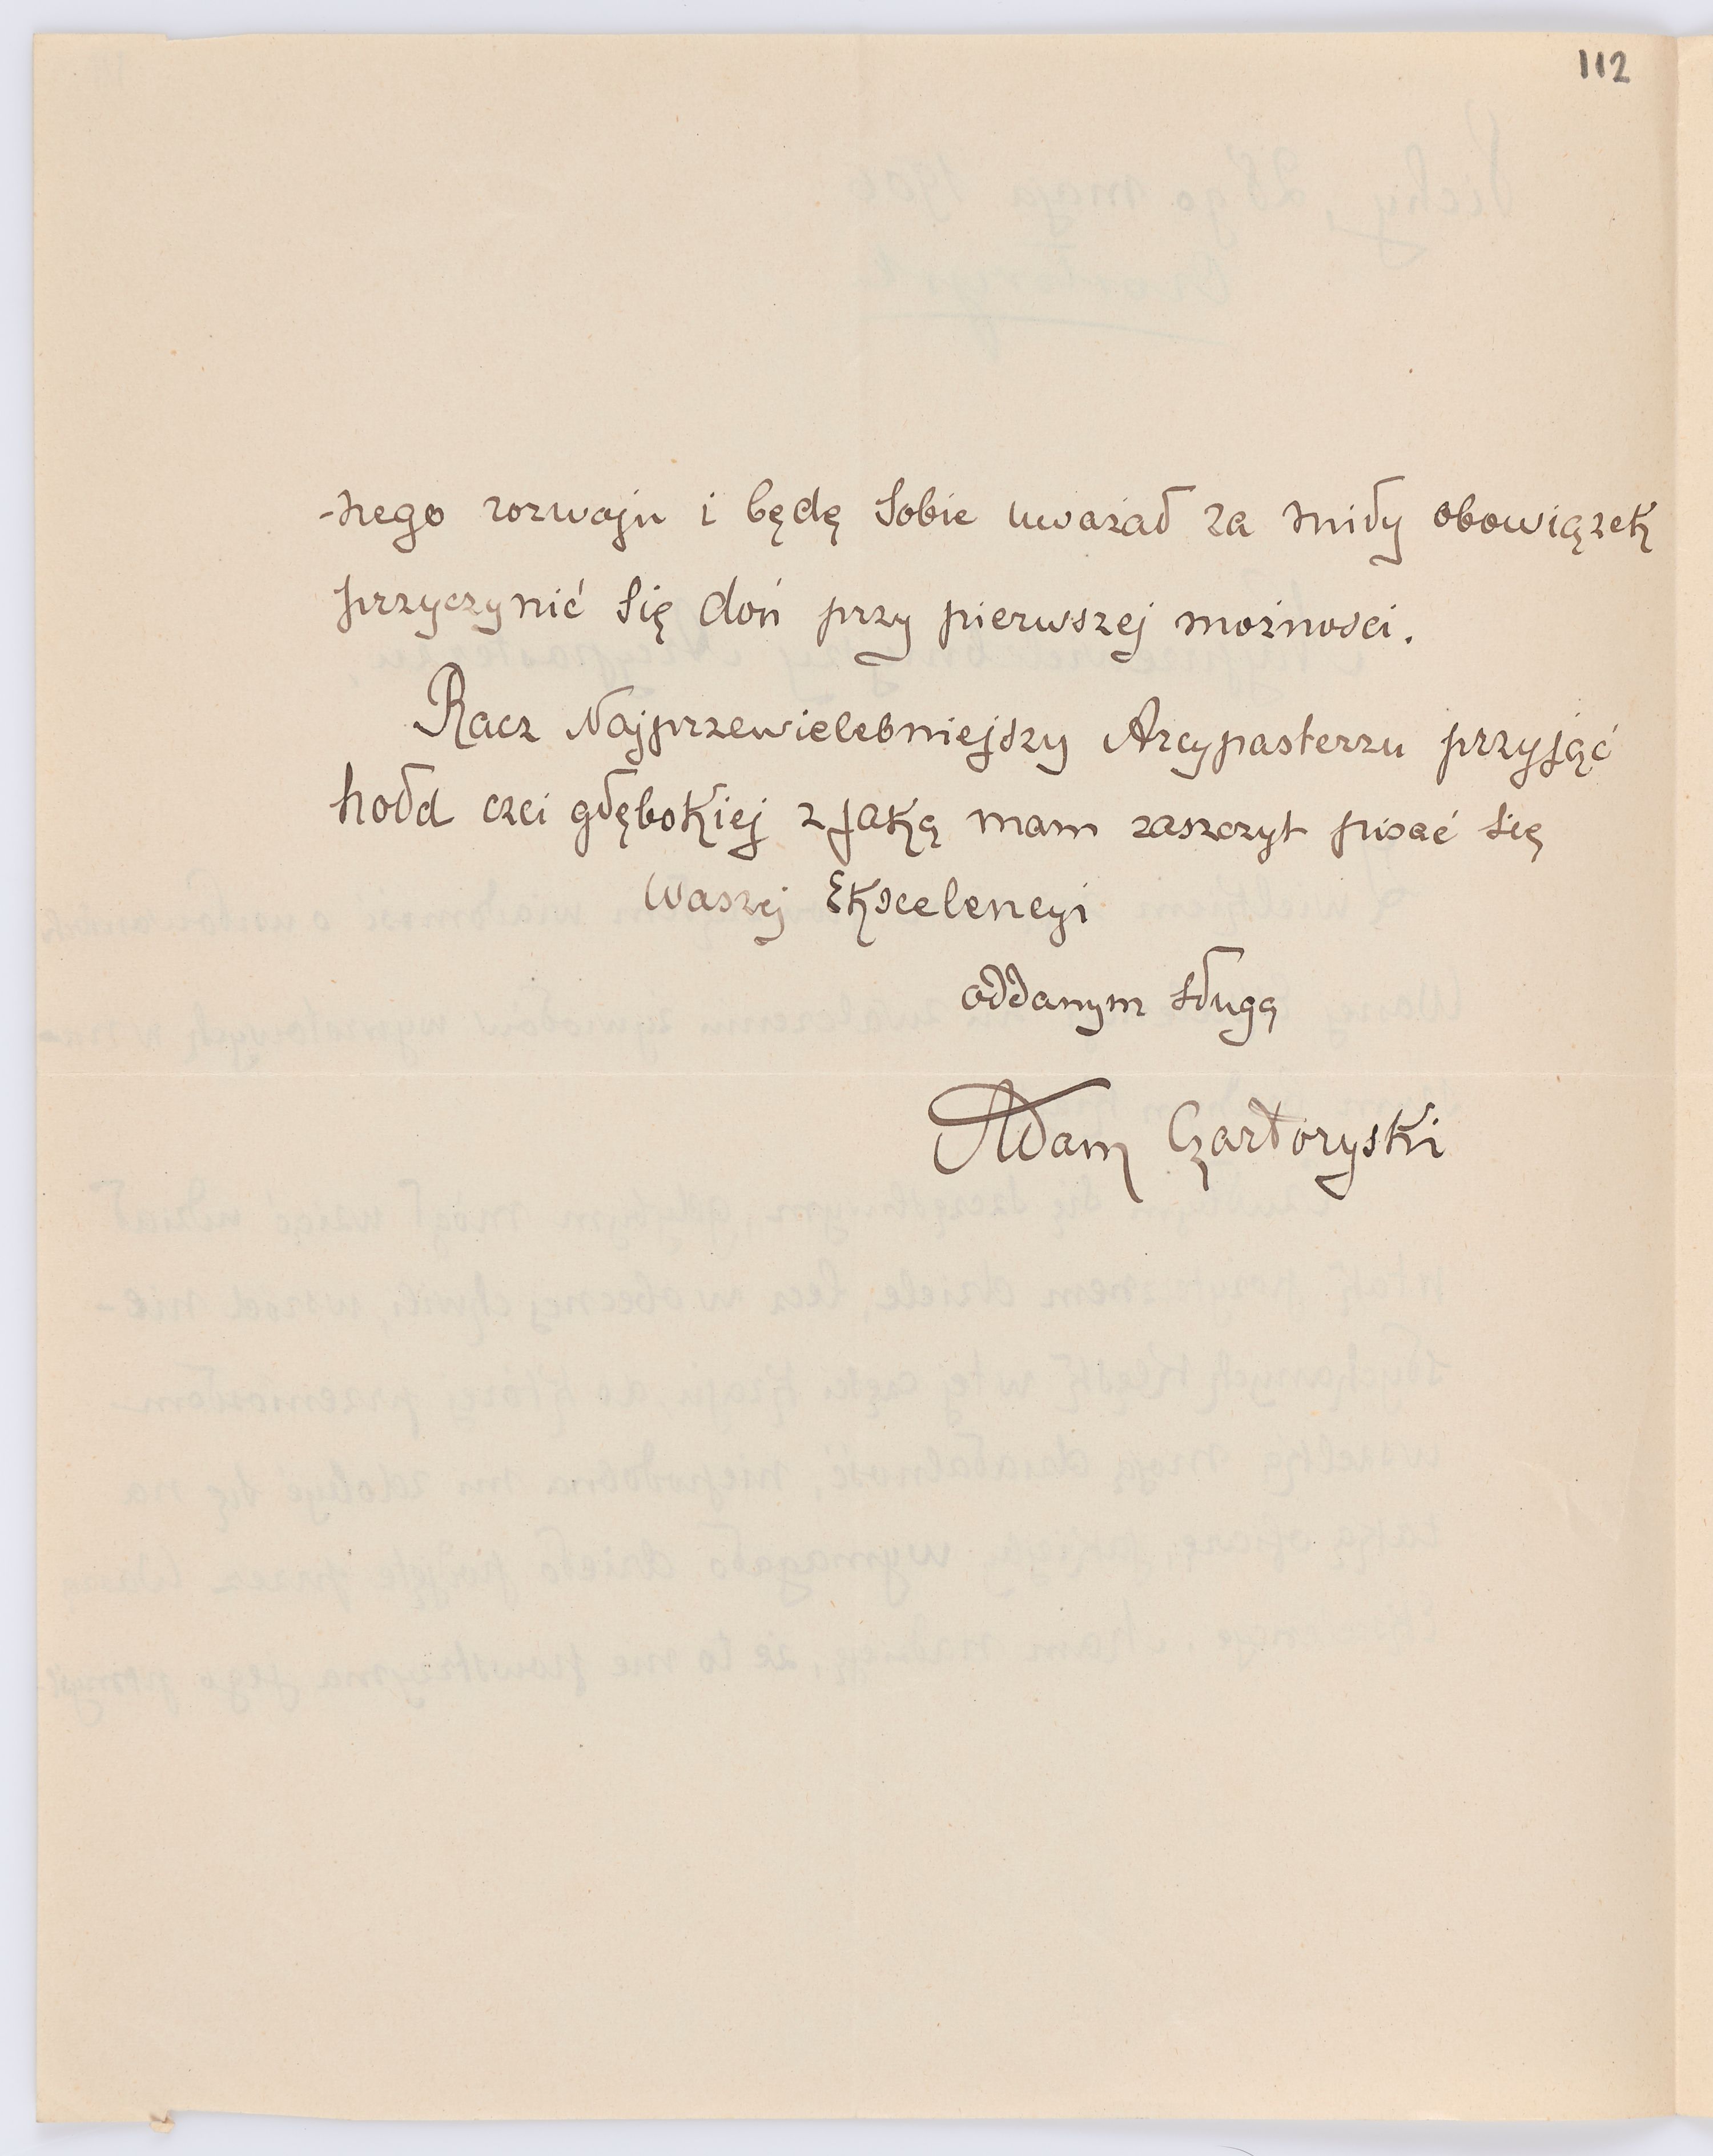 112
-nego rozwoju i będę sobie uważał za miły obowiązek
przyczynić się doń przy pierwszej możności.
Racz Najprzewielebniejszy Arcypasterzu przyjąć
hołd czci głębokiej z jaką mam zaszczyt pisać się
Waszej Ekscelencyi
oddanym sługą
Adam Czartoryski